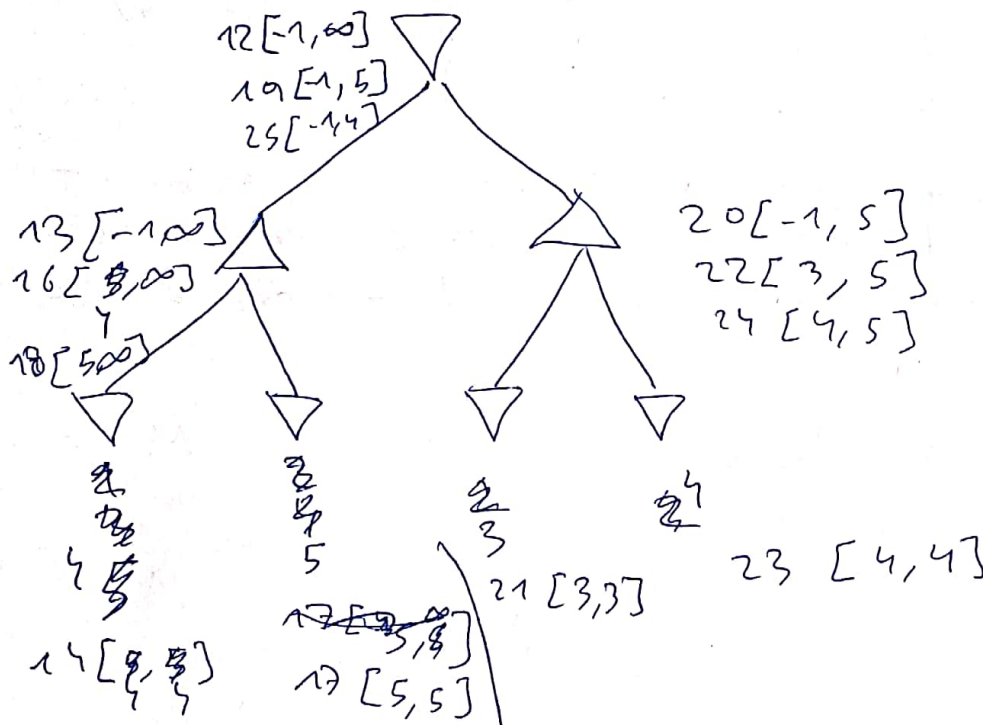 12 [-1, ∞]
19 [-1, 5]
25 [-1, 4]
13 [-1, ∞]
16 [4, ∞]
18 [5, ∞]
20 [-1, 5]
22 [3, 5]
24 [4, 5]
4
5
3
4
14 [4, 4]
17 [5, 5]
21 [3,3]
23 [4,4]